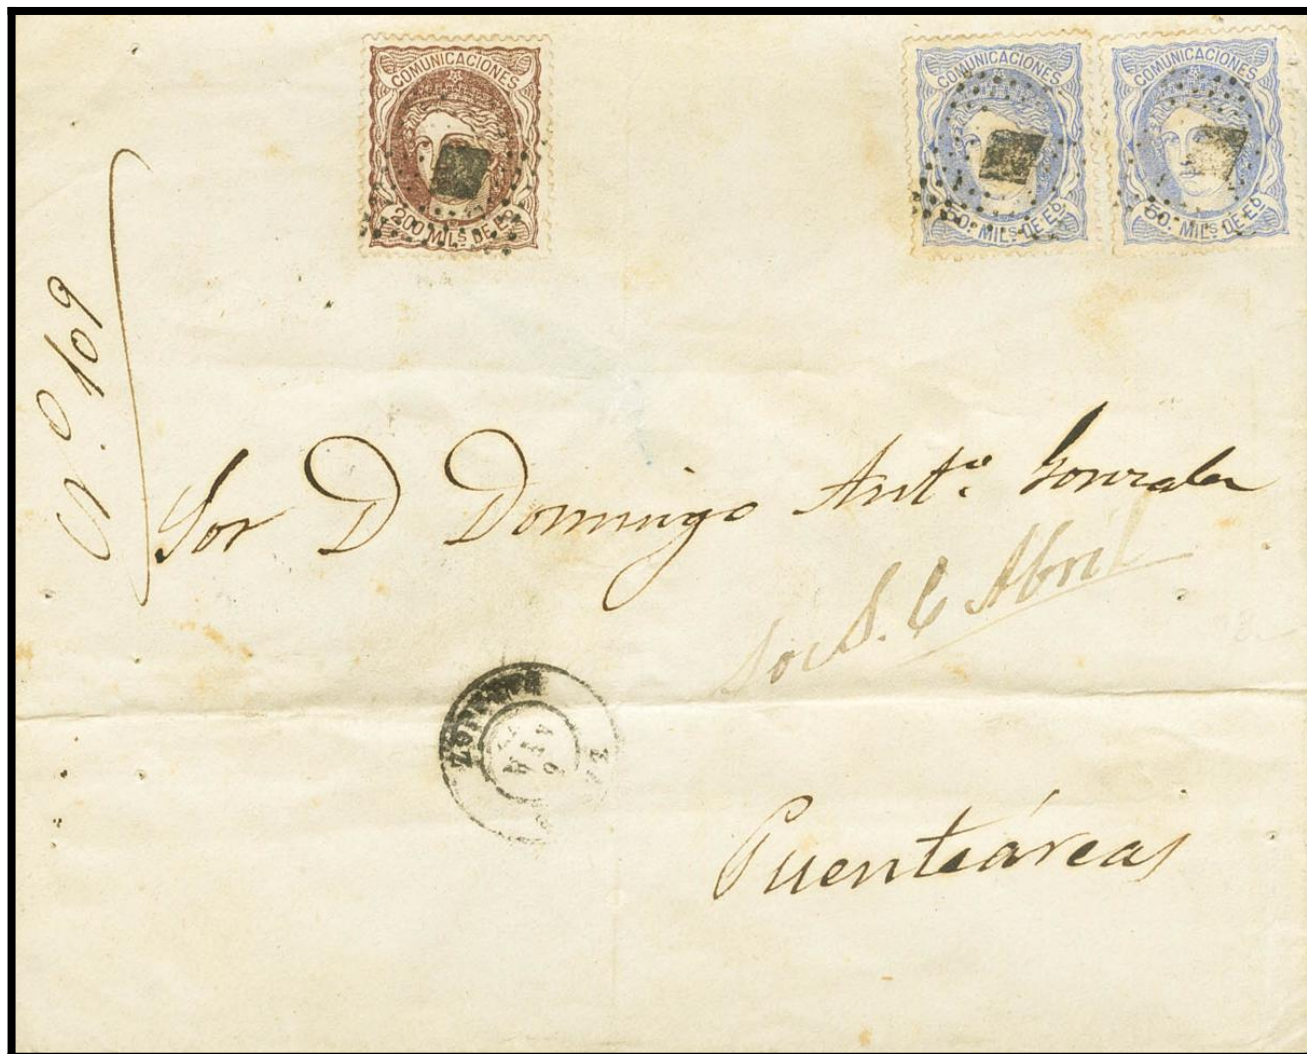 COMUNICACIONES
200 MILS DE Eº
COMUNICACIONES
50. MILS DE Eº
COMUNICACIONES
50. MILS DE Eº
Nº. 109
Sor D Domingo Antº. Gonzalez
Abril
Puenteáreas